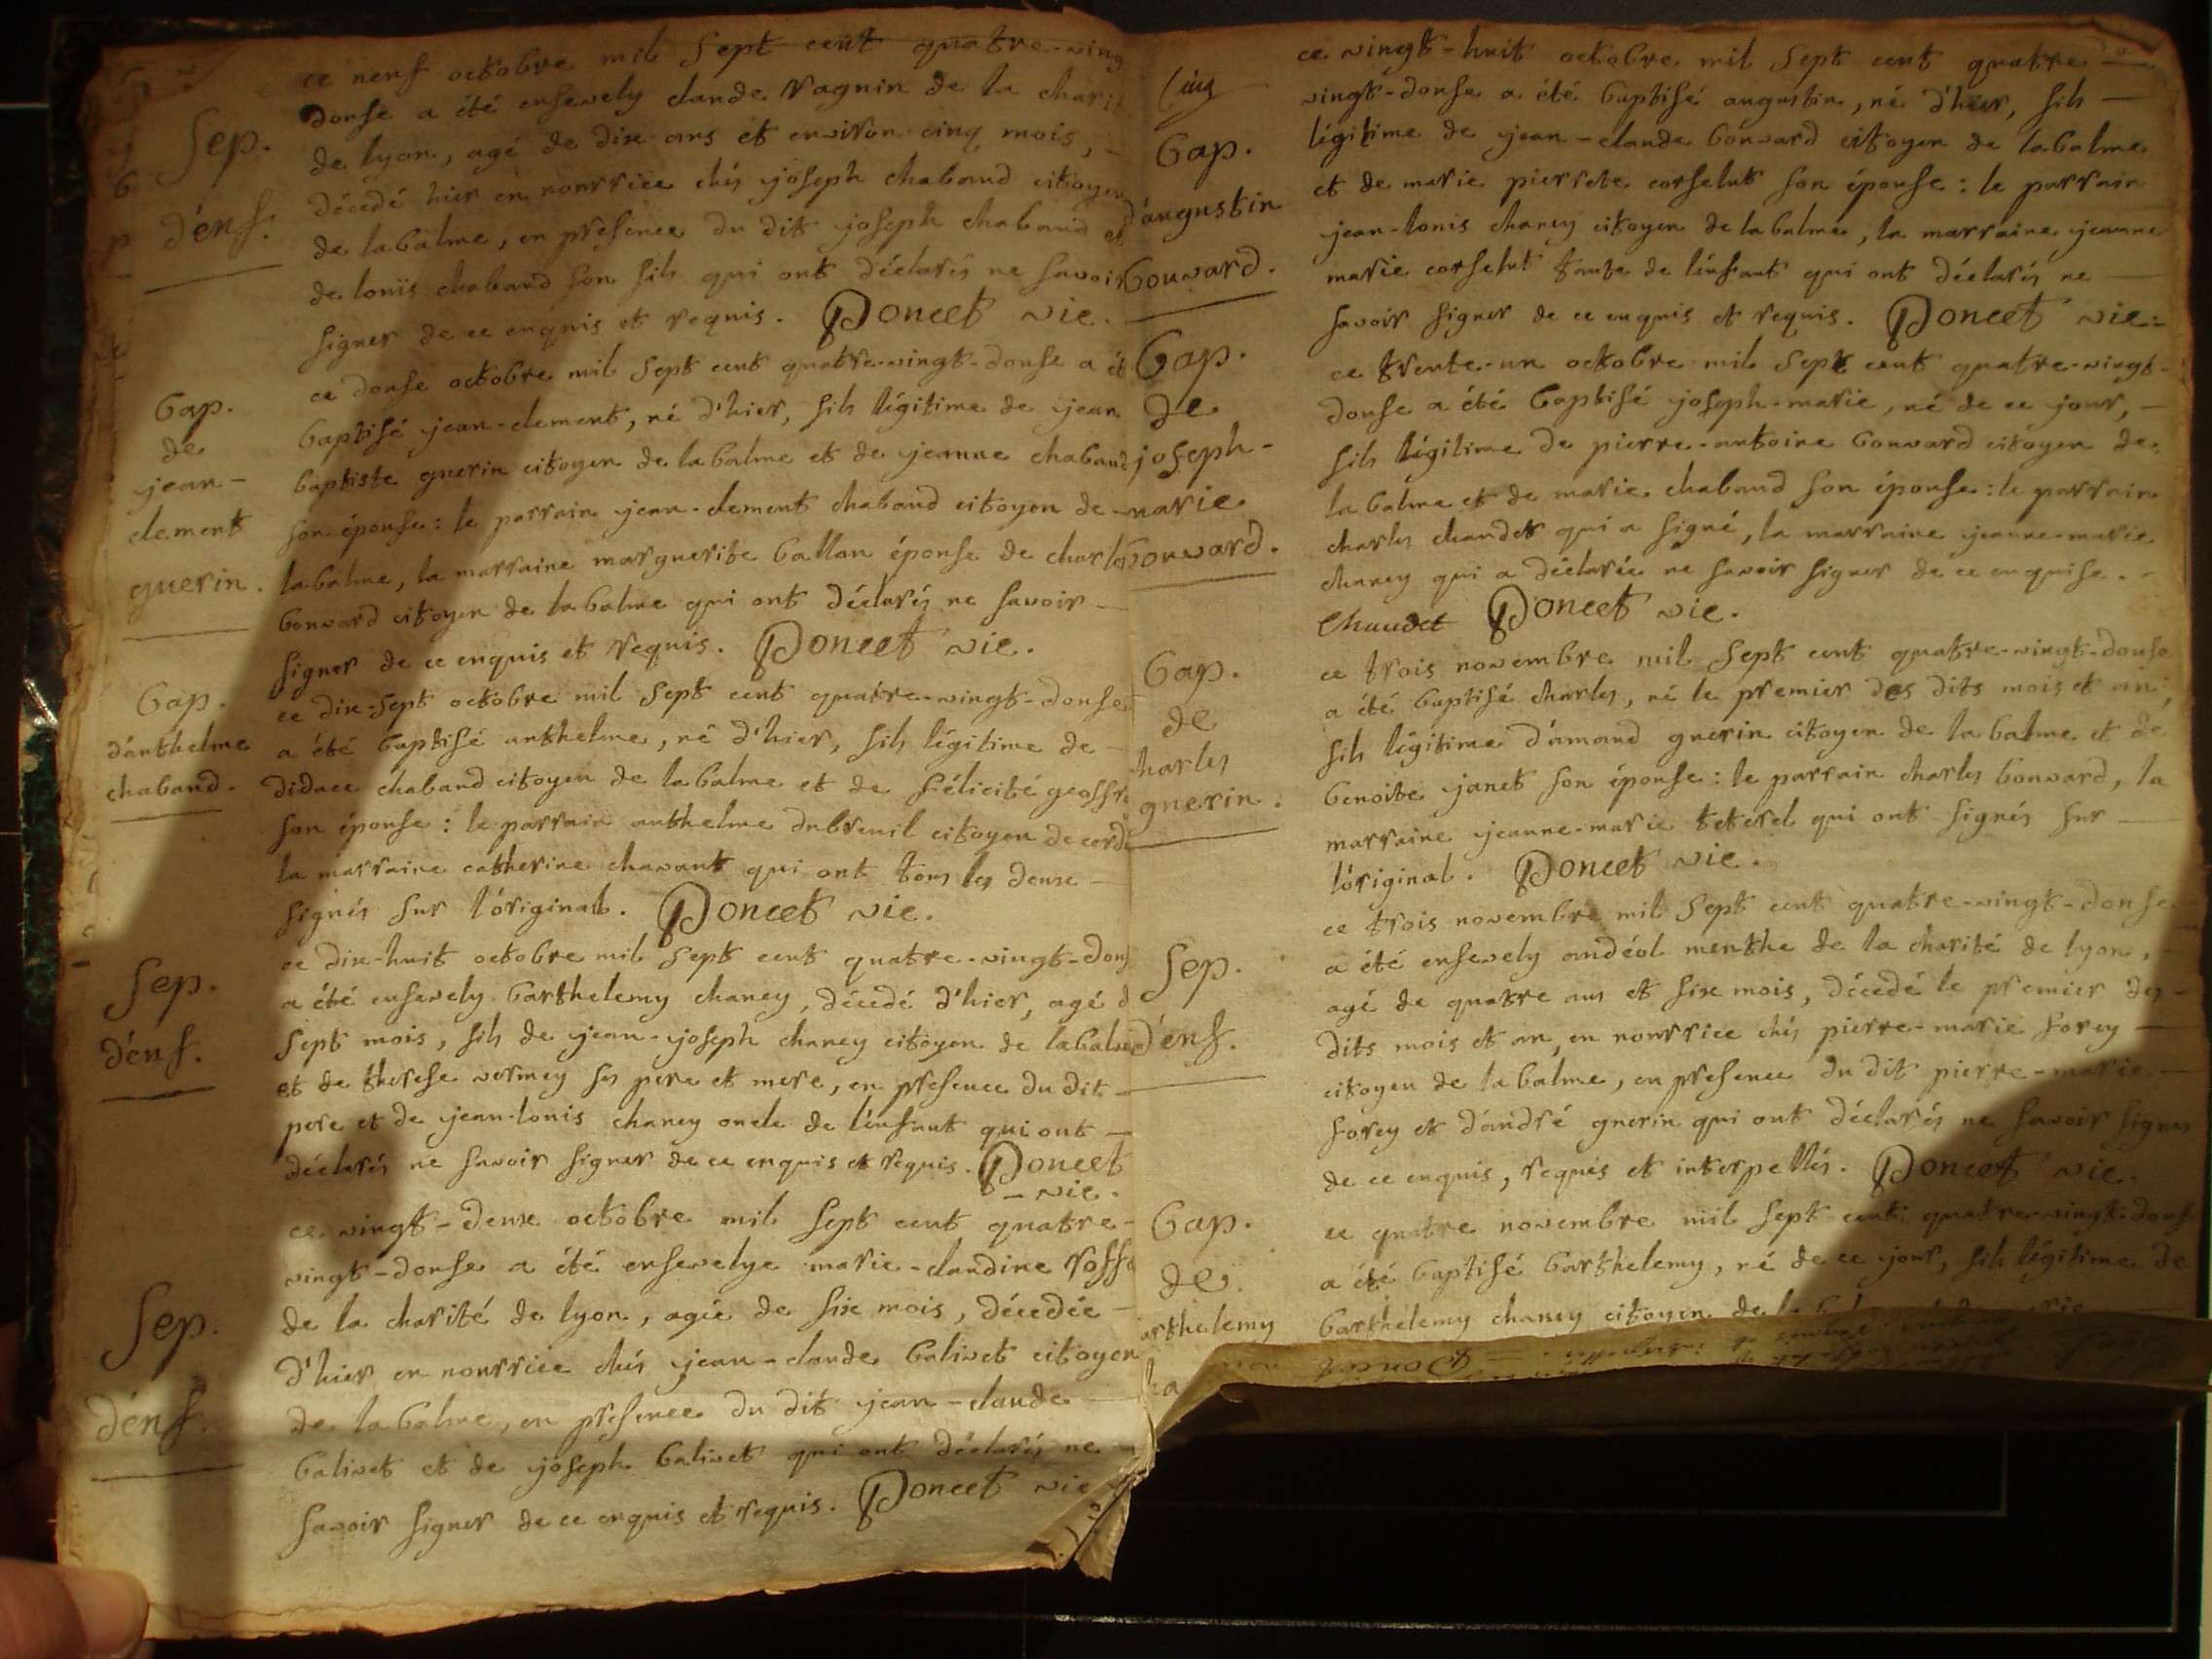 Sep.
d'enf.
ce neuf octobre mil sept cent quatre-ving
douse a été ensevely claude vagnin de la charit
de lyon, agé de dix ans et environ cinq mois, -
décedé hier en nourrice chés joseph chaband citoyen
de labalme, en presence du dit joseph chaband et
de loüis chaband son fils qui ont déclarés ne savoir
signer de ce enquis et requis. Poncet vic.
Bap.
de
jean-
clement
guerin.
ce douse octobre mil sept cent quatre-vingt-douse a ét
baptisé jean-clement, né d'hier, fils légitime de jean
baptiste guerin citoyen de labalme et de jeanne chaband
son épouse: le parrain jean-clement chaband citoyen de -
labalme, la marraine marguerite ballan épouse de charle
bonvard citoyen de labalme qui ont déclarés ne savoir -
signer de ce enquis et requis. Poncet vic.
Bap.
d'anthelme
chaband.
ce dix-sept octobre mil sept cent quatre-vingt-douse
a été baptisé anthelme, né d'hier, fils légitime de -
didace chaband citoyen de labalme et de félicité geoffr
son épouse: le parrain anthelme dubreuil citoyen de cord
la marraine catherine chavant qui ont tous les deux -
signés sur l'original. Poncet vic.
Sep.
d'enf.
ce dix-huit octobre mil sept cent quatre-vingt-dous
a été ensevely barthelemy chaney, décedé d'hier, agé d
sept mois, fils de jean-joseph chaney citoyen de labalme
et de therese vermey ses pere et mere, en presence du dit -
pere et de jean-louis chaney oncle de l'enfant qui ont -
déclarés ne savoir signer de ce enquis et requis. Poncet
- vic.
Sep.
d'enf.
ce vingt-deux octobre mil sept cent quatre-
vingt-douse a été ensevelye marie-claudine roffa
de la charité de lyon, agée de six mois, décedée -
d'hier en nourrice chés jean-claude balivet citoyen
de labalme, en presence du dit jean-claude -
balivet et de joseph balivet qui ont déclarés ne
savoir signer de ce enquis et requis. Poncet vic
Bap.
d'augustin
bonvard.
ce vingt-huit octobre mil sept cent quatre -
vingt-douse a été baptisé augustin, né d'hier, fils -
légitime de jean-claude bonvard citoyen de labalme
et de marie pierrete corselut son épouse: le parrain
jean-louis chaney citoyen de labalme, la marraine jeanne
marie corselut tante de l'enfant qui ont déclarés ne -
savoir signer de ce enquis et requis. Poncet vic.
Bap.
de
joseph-
marie
bonvard.
ce trente-un octobre mil sept cent quatre-vingt-
douse a été baptisé joseph-marie, né de ce jour, -
fils légitime de pierre-antoine bonvard citoyen de
labalme et de marie chaband son épouse: le parrain
charles chaudet qui a signé, la marraine jeanne-marie
chaney qui a déclarée ne savoir signer de ce enquise. -
Chaudet Poncet vic.
Bap.
de
charles
guerin.
ce trois novembre mil sept cent quatre-vingt-douse
a été baptisé charles, né le premier des dits mois et an,
fils légitime d'amand guerin citoyen de labalme et de
benoite janet son épouse: le parrain charles bonvard, la
marraine jeanne-marie teterel qui ont signés sur -
l'original. Poncet vic.
Sep.
d'enf.
ce trois novembre mil sept cent quatre-vingt-douse
a été ensevely andéol menthe de la charité de lyon, -
agé de quatre ans et six mois, décedé le premier des -
dits mois et an, en nourrice chés pierre-marie forey -
citoyen de labalme, en presence du dit pierre-marie -
forey et d'andré guerin qui ont déclarés ne savoir signer
de ce enquis, requis et interpellés. Poncet vic.
Bap.
de
arthelemy
ha
ce quatre novembre mil sept cent quatre-vingt-dous
a été baptisé barthelemy, né de ce jour, fils légitime de
barthelemy chaney citoyen de
Poncet